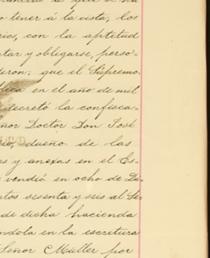 o tener á la vista, los
rio, con la aptitud
tar y obligarse, perso-
deron; que el Supremo
lica en el año de mil
decretó la confisca-
ñor Doctor Don José
dueño de las
s y anexas en el Es-
vendió en ocho de
tos sesenta y seis al Se-
de dicha hacienda
ndola en la escritura
Señor Müller por